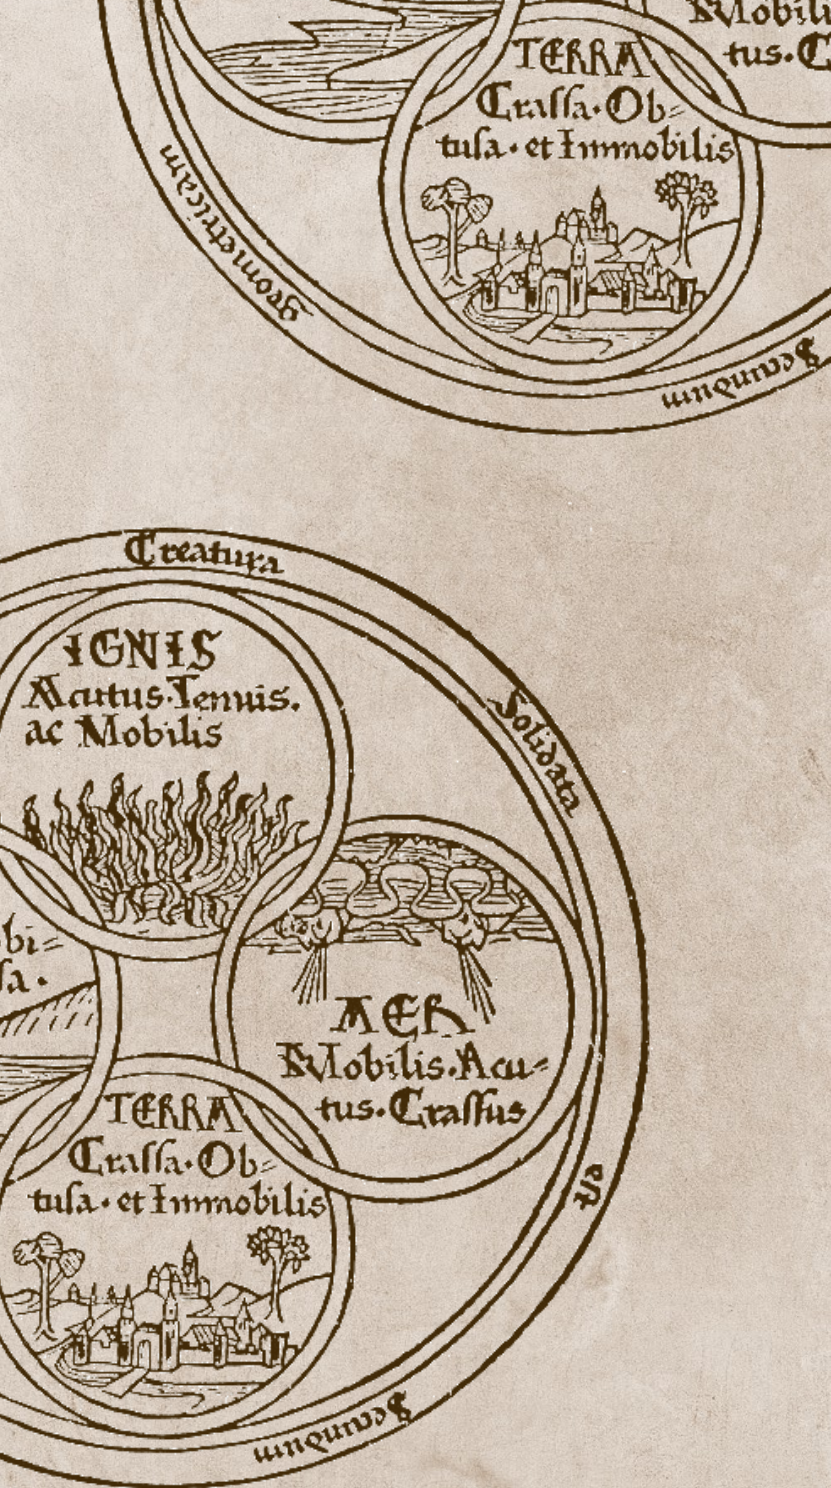 Mobili
tus. C
TERRA
Crassa. Ob=
tusa. et Immobilis
geometricam
Secundum
Creatura
Solidata
IGNIS
Acutus. Tenuis.
ac Mobilis
bi=
sa.
AER
Mobilis. Acu=
tus. Crassus
TERRA
Crassa. Ob=
tusa. et Immobilis
Secundum